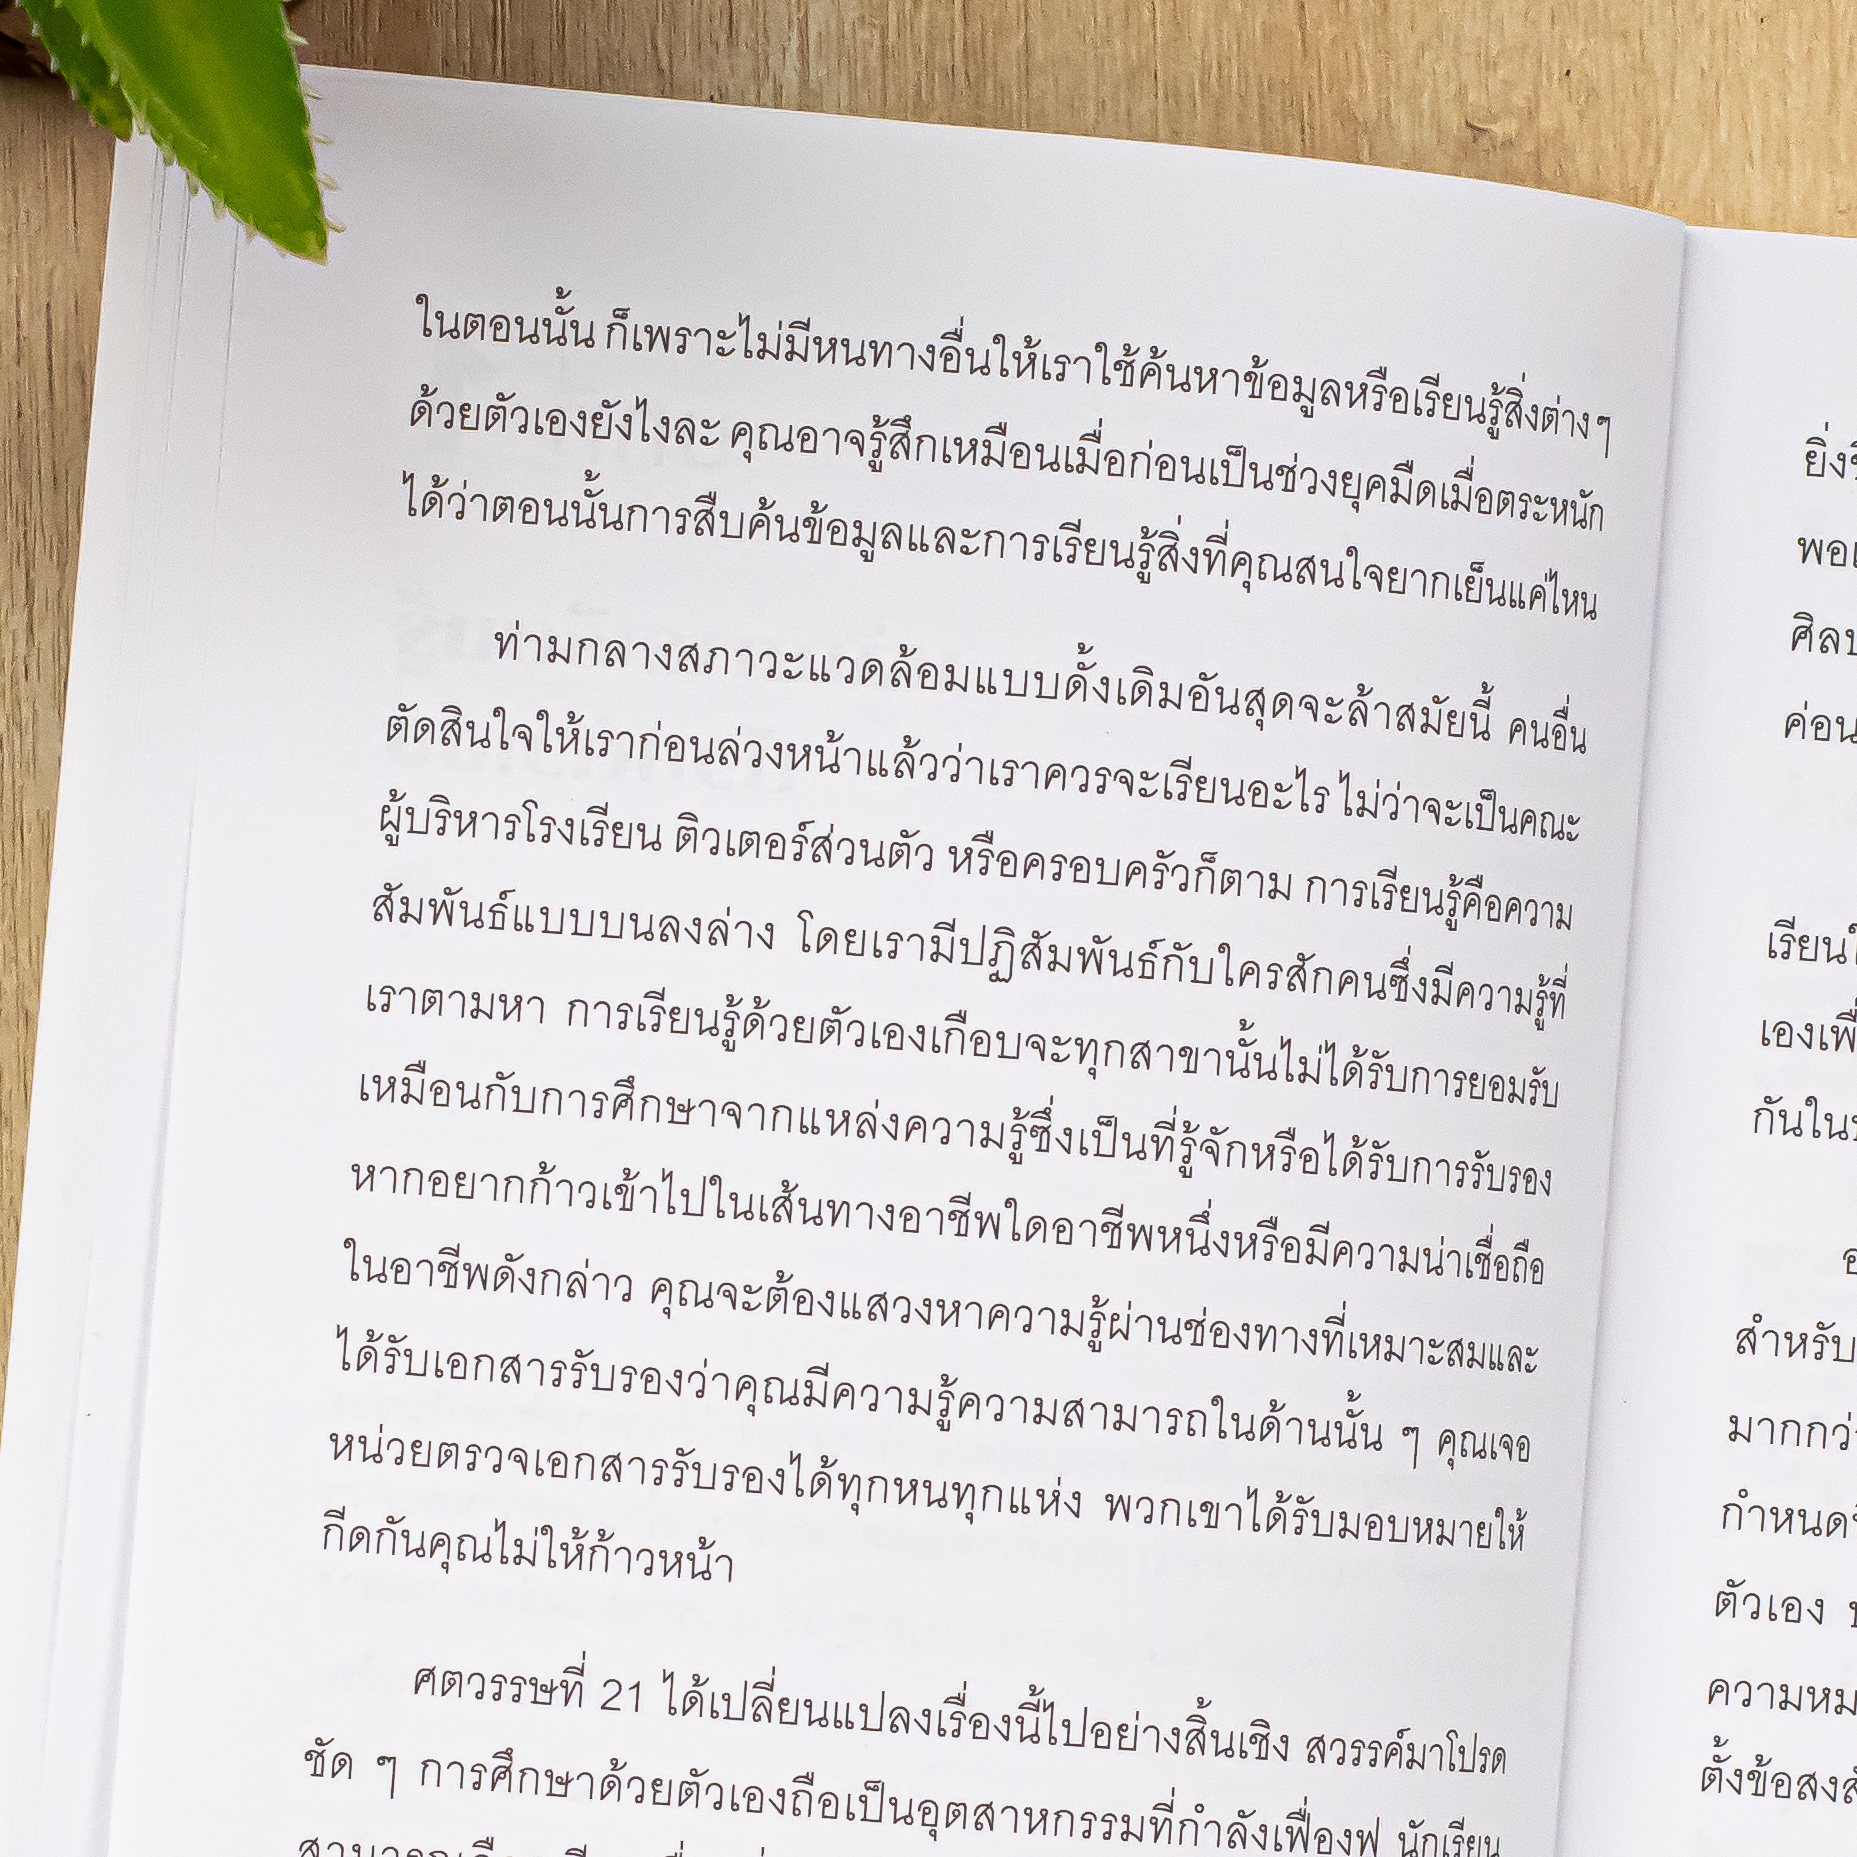 ในตอนนั้น ก็เพราะไม่มีหนทางอื่นให้เราใช้ค้นหาข้อมูลหรือเรียนรู้สิ่งต่างๆ
ด้วยตัวเองยังไงละ คุณอาจรู้สึกเหมือนเมื่อก่อนเป็นช่วงยุคมืดเมื่อตระหนัก
ได้ว่าตอนนั้นการสืบค้นข้อมูลและการเรียนรู้สิ่งที่คุณสนใจยากเย็นแค่ไหน
ท่ามกลางสภาวะแวดล้อมแบบดั้งเดิมอันสุดจะล้าสมัยนี้ คนอื่น
ตัดสินใจให้เราก่อนล่วงหน้าแล้วว่าเราควรจะเรียนอะไร ไม่ว่าจะเป็นคณะ
ผู้บริหารโรงเรียน ติวเตอร์ส่วนตัว หรือครอบครัวก็ตาม การเรียนรู้คือความ
สัมพันธ์แบบบนลงล่าง โดยเรามีปฏิสัมพันธ์กับใครสักคนซึ่งมีความรู้ที่
เราตามหา การเรียนรู้ด้วยตัวเองเกือบจะทุกสาขานั้นไม่ได้รับการยอมรับ
เหมือนกับการศึกษาจากแหล่งความรู้ซึ่งเป็นที่รู้จักหรือได้รับการรับรอง
หากอยากก้าวเข้าไปในเส้นทางอาชีพใดอาชีพหนึ่งหรือมีความน่าเชื่อถือ
ในอาชีพดังกล่าว คุณจะต้องแสวงหาความรู้ผ่านช่องทางที่เหมาะสมและ
ได้รับเอกสารรับรองว่าคุณมีความรู้ความสามารถในด้านนั้น ๆ คุณเจอ
หน่วยตรวจเอกสารรับรองได้ทุกหนทุกแห่ง พวกเขาได้รับมอบหมายให้
กีดกันคุณไม่ให้ก้าวหน้า
ศตวรรษที่ 21 ได้เปลี่ยนแปลงเรื่องนี้ไปอย่างสิ้นเชิง สวรรค์มาโปรด
ชัด ๆ การศึกษาด้วยตัวเองถือเป็นอุตสาหกรรมที่กำลังเฟื่องฟู นักเรียน
ศิลป
ค่อน
เรียน
กันใน
สำหรับ
มากกว่า
กำหนด
ตัวเอง
ความหม
ตั้งข้อสง